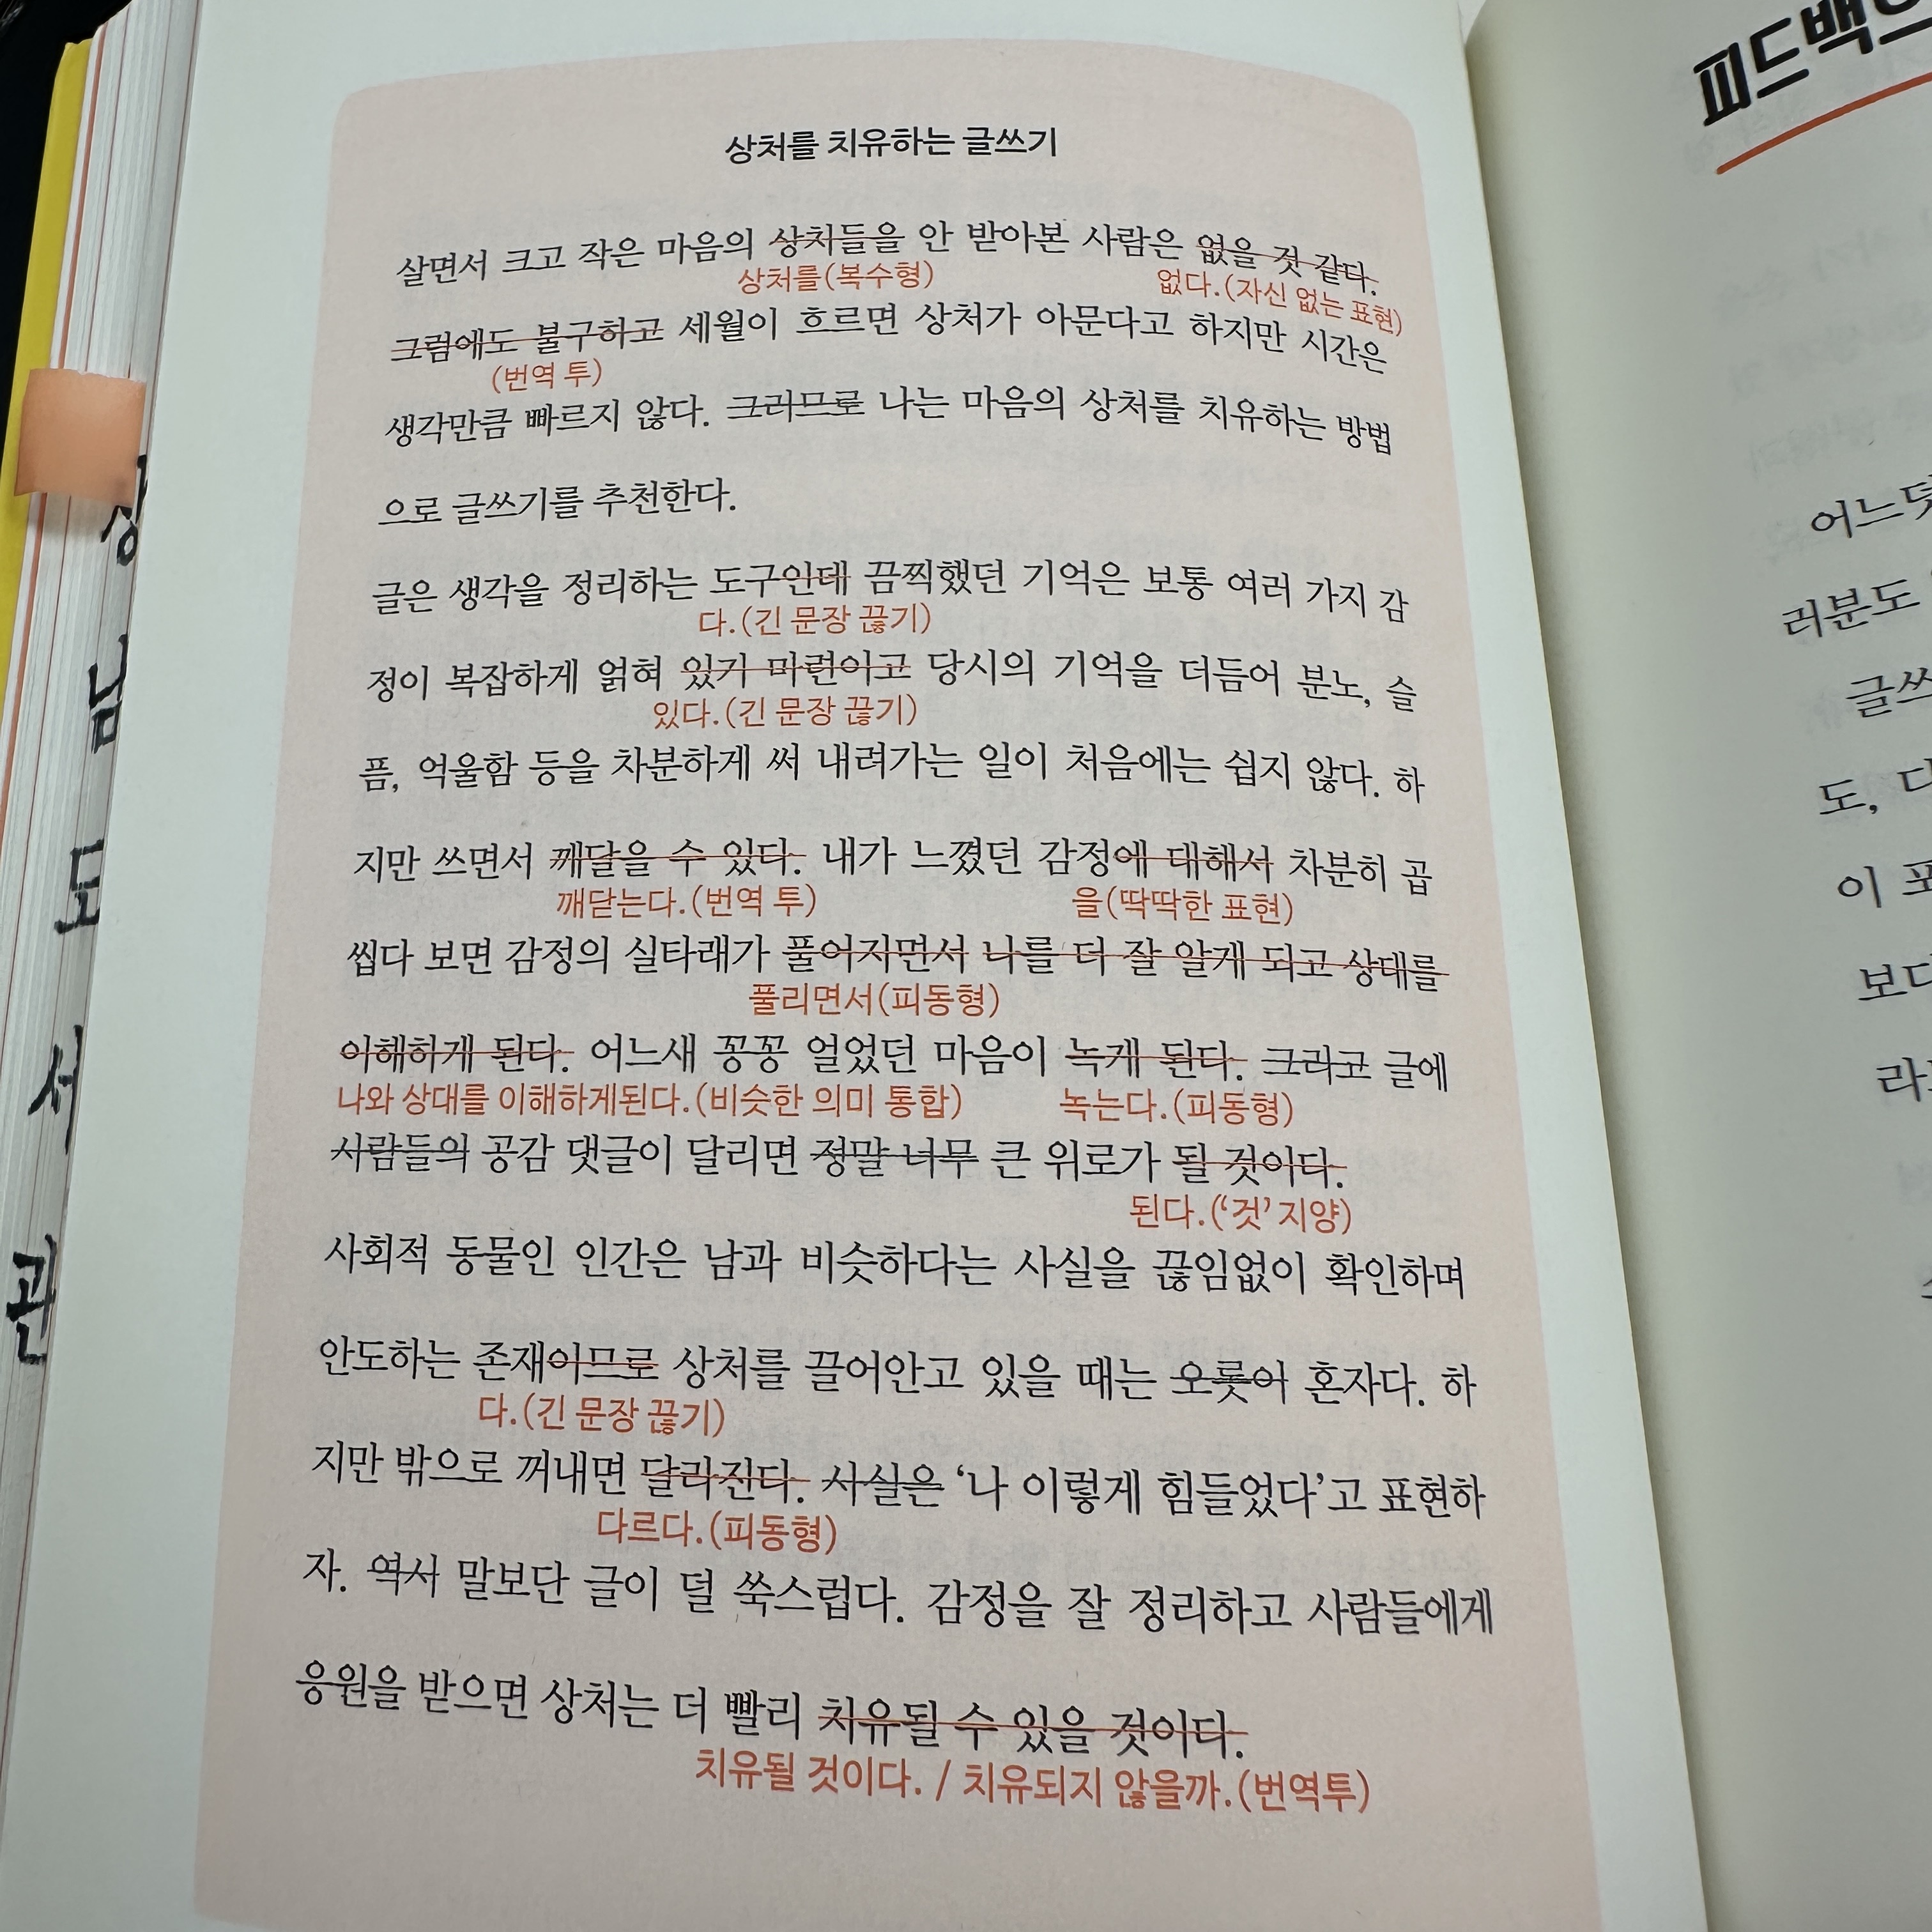 상처를 치유하는 글쓰기
살면서 크고 작은 마음의 상처들을 안 받아본 사람은 없을 것 같다.
상처를(복수형) 없다.(자신 없는 표현)
그럼에도 불구하고 세월이 흐르면 상처가 아문다고 하지만 시간은
(번역 투)
생각만큼 빠르지 않다. 그러므로 나는 마음의 상처를 치유하는 방법
으로 글쓰기를 추천한다.
글은 생각을 정리하는 도구인데 끔찍했던 기억은 보통 여러 가지 감
다.(긴 문장 끊기)
정이 복잡하게 얽혀 있기 마련이고 당시의 기억을 더듬어 분노, 슬
있다.(긴 문장 끊기)
픔, 억울함 등을 차분하게 써 내려가는 일이 처음에는 쉽지 않다. 하
지만 쓰면서 깨달을 수 있다. 내가 느꼈던 감정에 대해서 차분히 곱
깨닫는다.(번역 투) 을(딱딱한 표현)
씹다 보면 감정의 실타래가 풀어지면서 나를 더 잘 알게 되고 상대를
풀리면서(피동형)
이해하게 된다. 어느새 꽁꽁 얼었던 마음이 녹게 된다. 그리고 글에
나와 상대를 이해하게된다.(비슷한 의미 통합) 녹는다.(피동형)
사람들의 공감 댓글이 달리면 정말 너무 큰 위로가 될 것이다.
된다.(‘것’ 지양)
사회적 동물인 인간은 남과 비슷하다는 사실을 끊임없이 확인하며
안도하는 존재이므로 상처를 끌어안고 있을 때는 오롯이 혼자다. 하
다.(긴 문장 끊기)
지만 밖으로 꺼내면 달라진다. 사실은 ‘나 이렇게 힘들었다’고 표현하
다르다.(피동형)
자. 역시 말보단 글이 덜 쑥스럽다. 감정을 잘 정리하고 사람들에게
응원을 받으면 상처는 더 빨리 치유될 수 있을 것이다.
치유될 것이다. / 치유되지 않을까.(번역투)
강남도서관
피드백
어느덧
러분도
글쓰
도, 다
이
보다